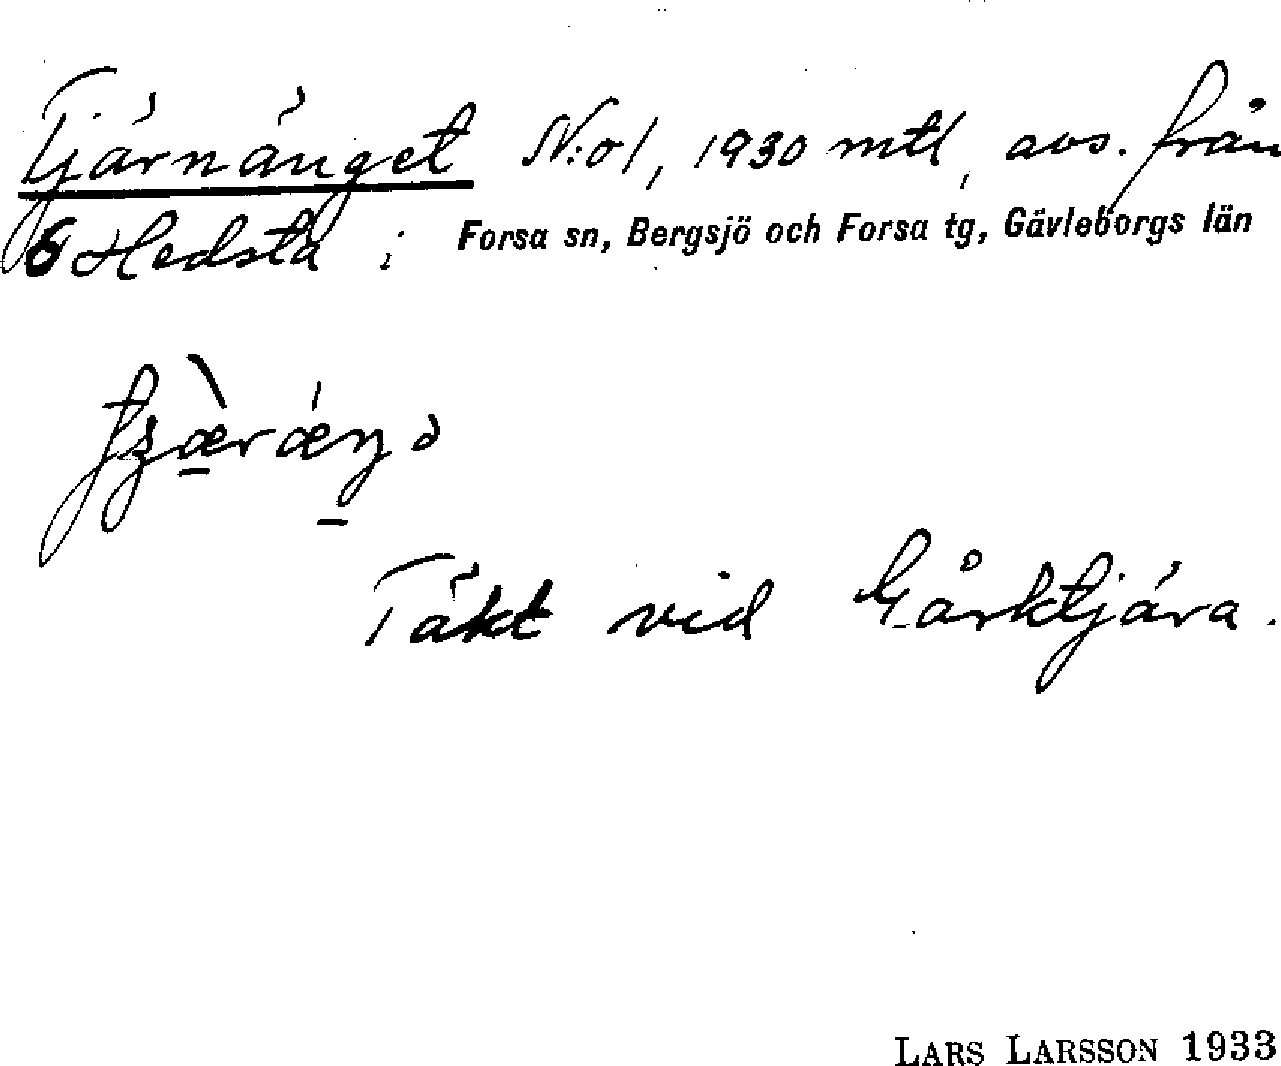 Tjärnänget N:o 1, 1930 mtl, avs. från
6 Hedsta i Forsa sn, Bergsjö och Forsa tg, Gävleborgs län
Täkt vid Gårktjära.
LARS LARSSON 1933